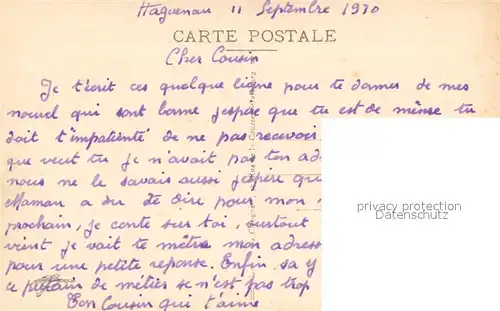 Haguenau 11 Septembre 1930
CARTE POSTALE
Cher Cousin
Je t'écrit ces quelque ligne pour te donner de mes
nouvel qui sont bonne j'espère que tu est de même tu
doit t'impatienté de ne pas recevoir
que veut tu je n'avait pas ton ad
nous ne le savais aussi j'espère qu
Maman a du te dire pour mon
prochain, je conte sur toi, surtout
vient je vait te mètre mon adress
pour une petite reponse. Enfin, sa y
ce putain de métier se n'est pas trop
Ton Cousin qui t'aime
privacy protection
Datenschutz